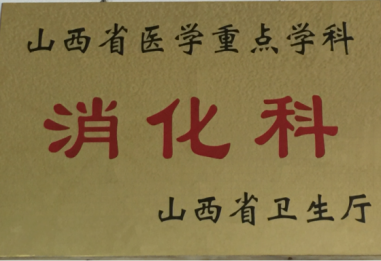 山西省医学重点学科
消化科
山西省卫生厅